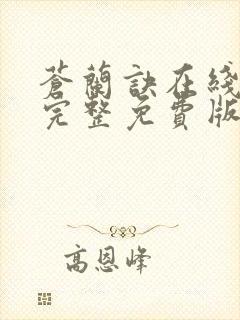 蒼蘭訣在綫
完整免費版
高恩峰